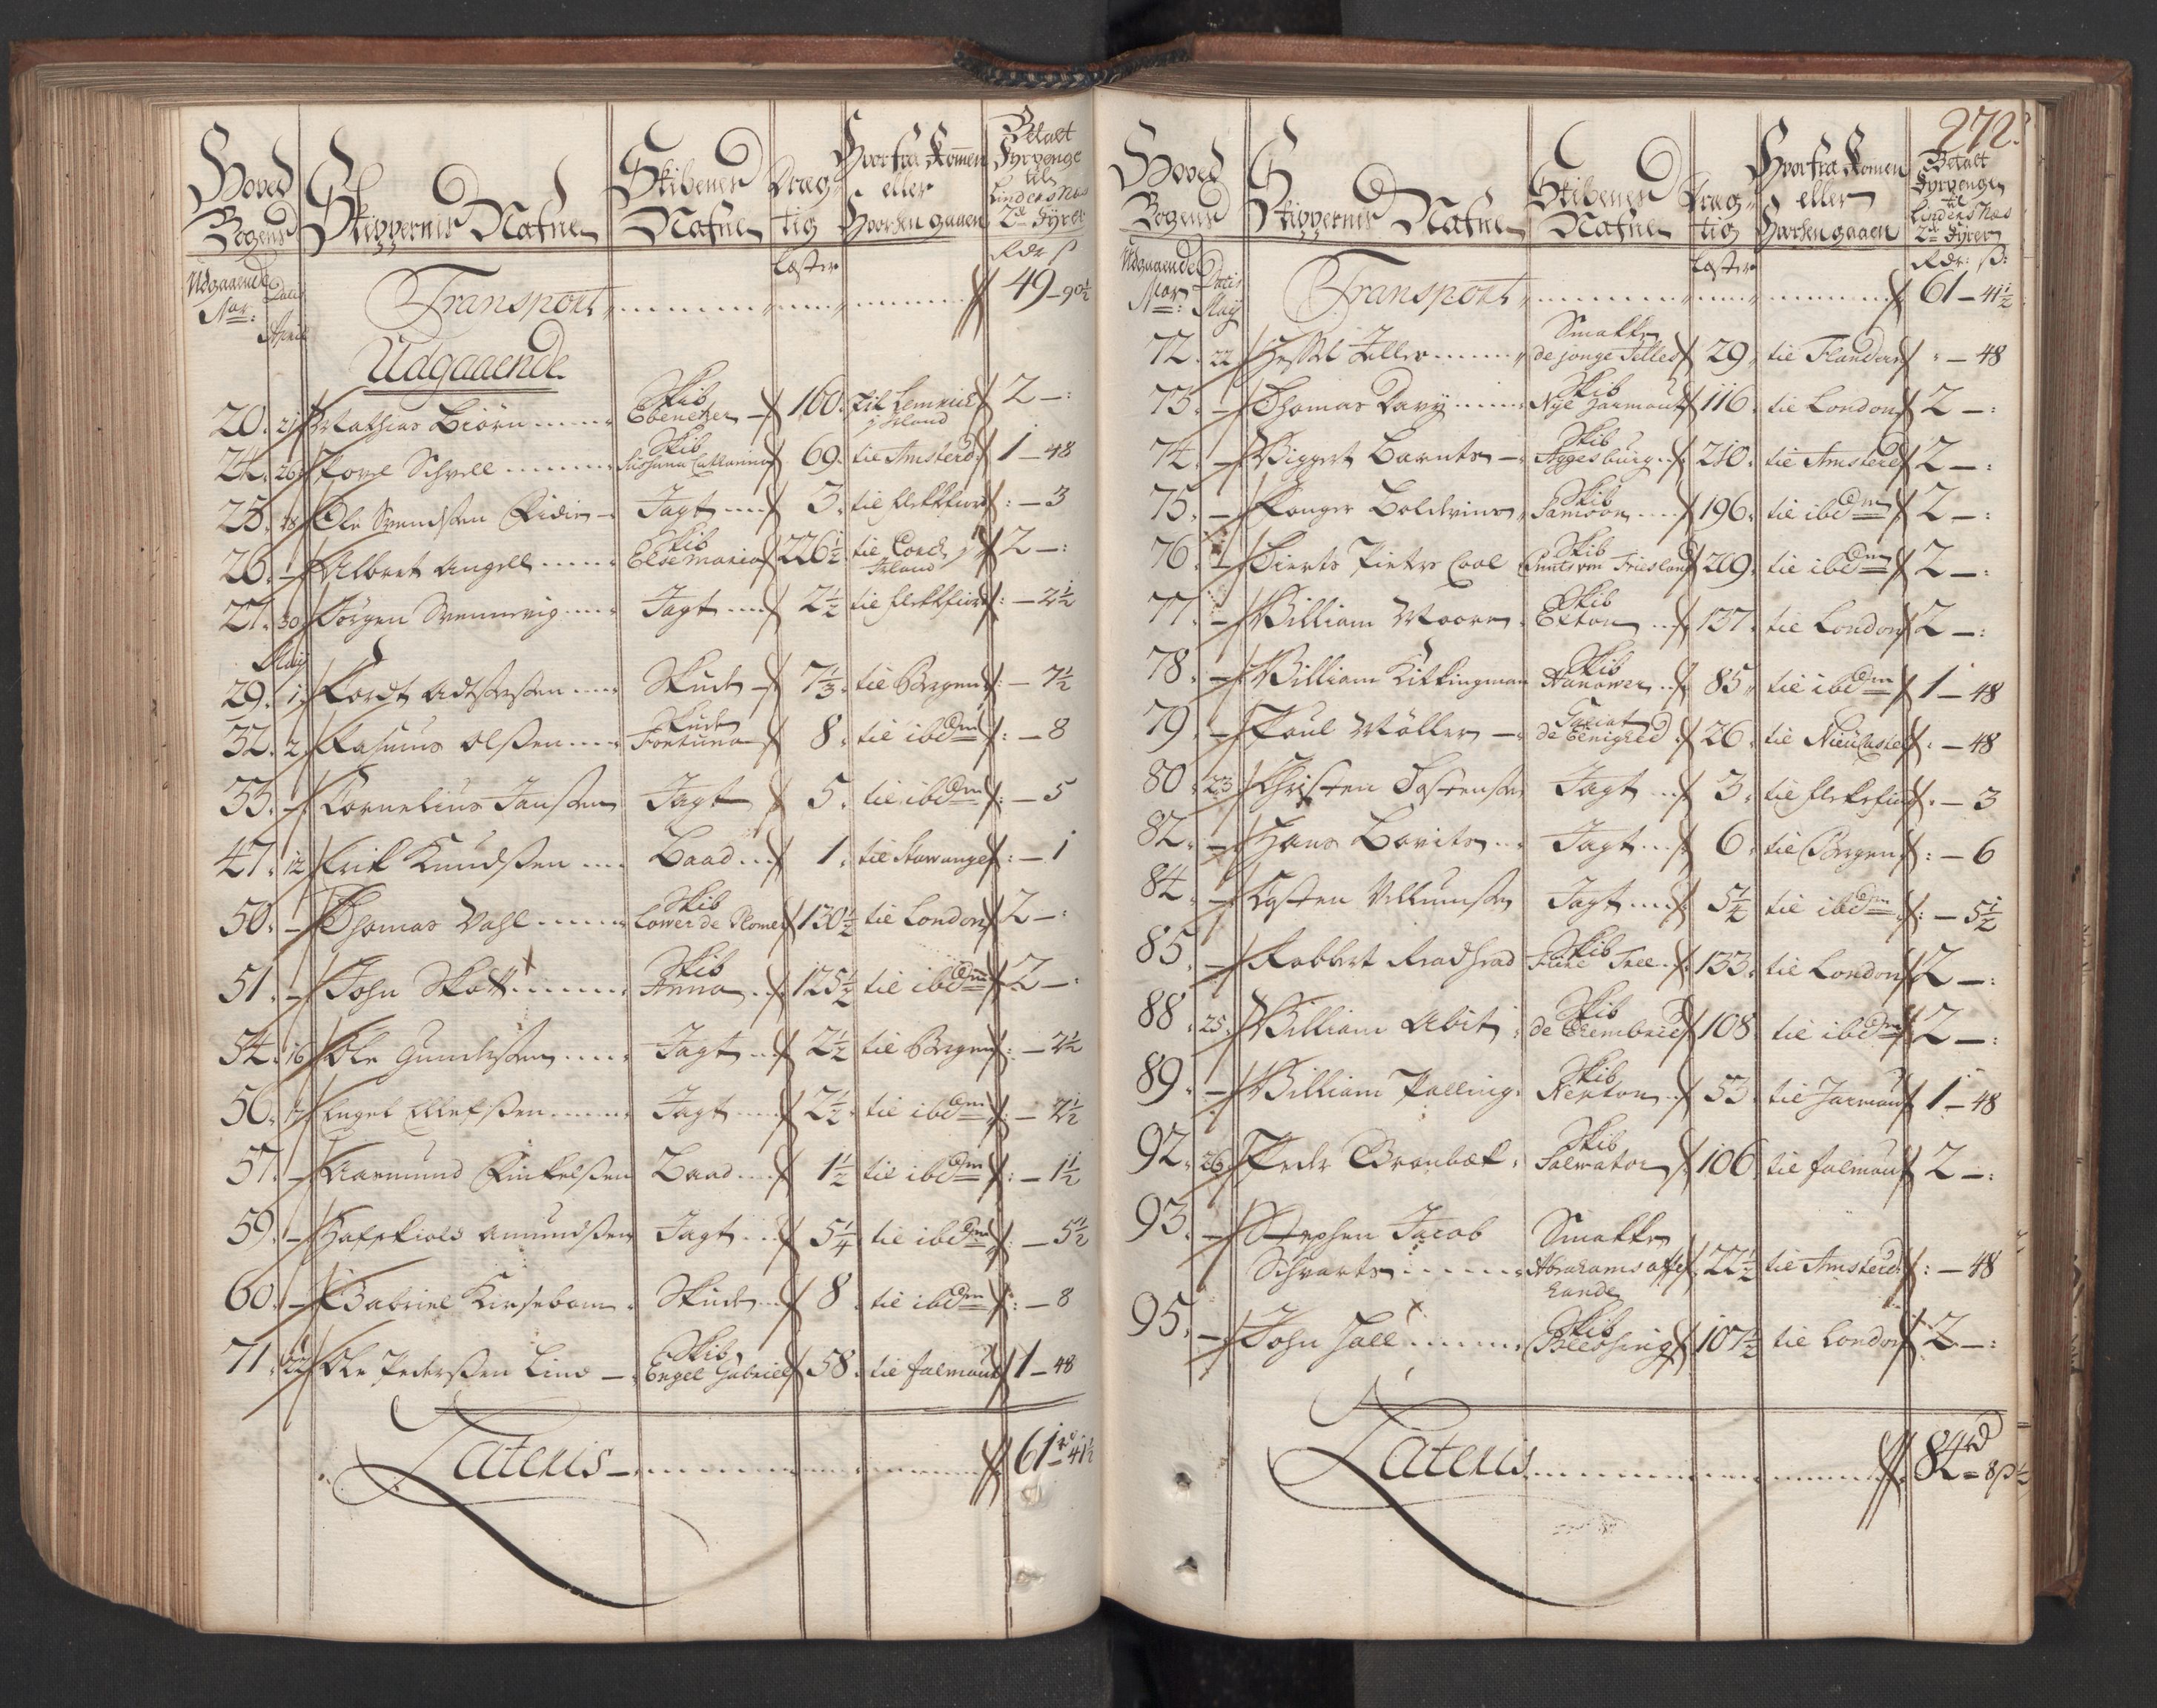 Hoved Bogens
Skippernis Nafne
Skibenes Nafne
Dræg-tig
Hvorfra Komen eller Hvorhen gaaen
Betalt Fyrpenge til Lindersnæs 2de Fyrer
Udgaaende No:
Datis
April
Læster
Rdr ß
Transport 49 – 90½
Udgaaende
20. 21 Mathias Biörn Skib Ebenetzer 160. Til Lemrich i Irland 2 –:
24. 26 Povel Schvell Skib Susanna Catharina 69. til Amsterd: 1 – 48
25. 28 Ole Svendsen Jagt 3. til flekkfiord : – 3
26. – Albret Angell Skib Else Maria 226½ til Corck i Irland 2 –:
27. 30 Jörgen Svennevig Jagt 2½ til flekkfiord : – 2½
Maij
29. 1. Skude 7⅓. til Bergen : – 7½
32. 2. Rasmus Olsen Skude Fortuna 8. til ibdm : – 8
33. – Cornelius Jansen Jagt 5. til ibdm : – 5
47. 12 Erik Knudsen Baad 1. til Stavanger : – 1
50. – Thomas Dahl Skib 130½ til London 2 –:
51. – John Skott Skib Anna 125½ til ibdm 2 –:
54. 16 Ole Gundersen Jagt 2½ til Bergen : – 2½
56. 17 Engel Ellefsen Jagt 2½. til ibdm : – 2½
57. – Aamund Baad 1½ til ibdm : – 1½
59. – Amundsen Jagt 5¼ til ibdm : – 5½
60. – Gabriel Kirsebom Skude 8. til ibdm : – 8
71. 22 Ole Pedersen Lind Skib Engel Gabriel 58. til falmaut 1 – 48
Lateris 61 rd 41½
272.
Hoved Bogens
Skippernis Nafne
Skibenes Nafne
Dræg-tig
Hvorfra Komen eller Hvorhen gaaen
Betalt Fyrpenge til Lindersnæs 2de Fyrer
Udgaaende No:
Datis
Maij
Læster
Rdr: ß:
Transport 61 – 41½
72. 22 Hessel Jelles Smakke de jonge Jelles 29. til Flandern : – 48
73. – Thomas Davy Skib Nye Jarmout 116. til London 2 –:
74. – Wiggert Barnts Skib Aggesburg 210. til Amsterd 2 –:
75. – Boldevins Skib Samson 196. til ibdm 2 –:
76. – Dierts Pieters Cool Skib 209. til ibdm 2 –:
77. – William Moore Skib Exton 137. til London 2 –:
78. – William Kitkingman Skib Hanower 85. til ibdm 1 – 48
79. – Poul Möller Galiat de Eenighed 26. til : – 48
80. 23 Christen Jagt 3. til flekefior : – 3
82. – Hans Bovits Jagt 6. til Bergen : – 6
84. – Villumsen Jagt 5¼ til ibdm : – 5½
85. – Robbert Skib Tree 133. til London 2 –:
88. 25. William Abit Skib 108. til ibdm 2 –:
89. – William Palling Skib Nepton 53. til Jarmaut 1 – 48
92. 26. Peder Brambæk Skib Salvator 106. til falmaut 2 –:
93. – Stephen Jacob Smakke
Schvarts Abrahams offer hande 22½ til Amsterd : – 48
95. – John Hall Skib Blessing 107½ til London 2 –:
Lateris 84 rd 8 ß ½